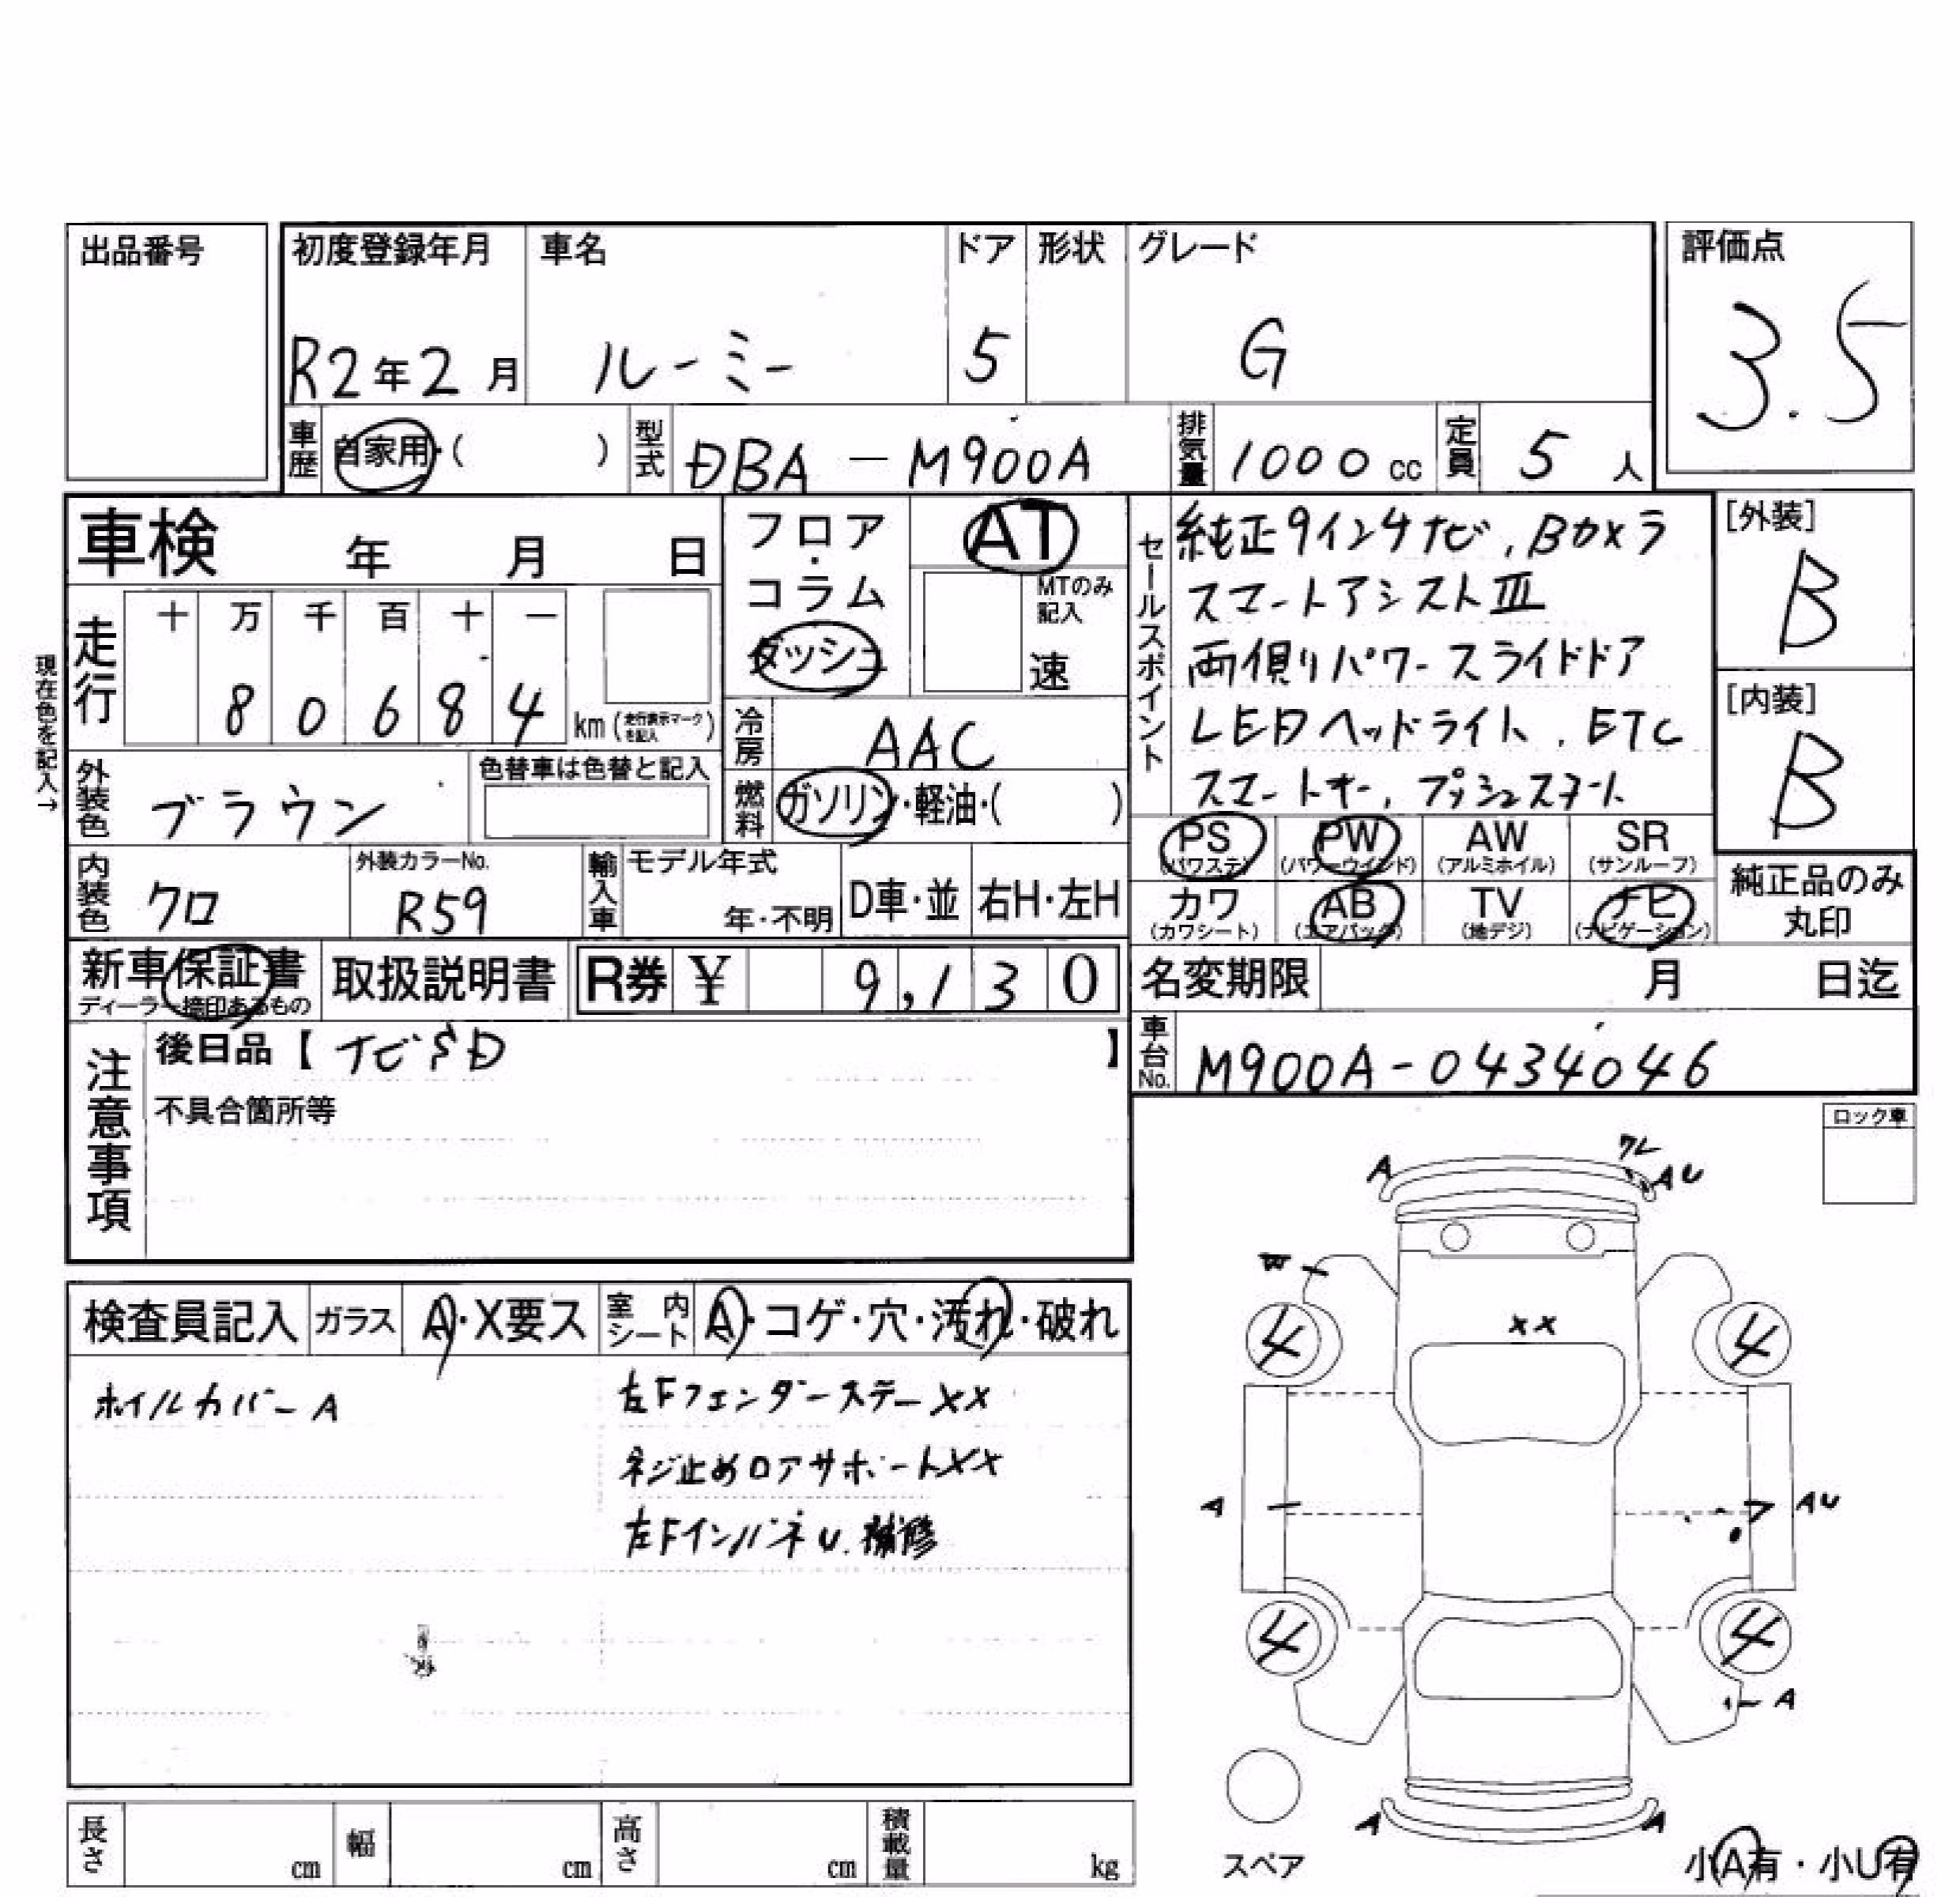 出品番号
初度登録年月 車名 ドア 形状 グレード 評価点
R2年2月 ルーミー 5 G 3.5
車歴 自家用・( ) 型式 DBA-M900A 排気量 1000cc 定員 5人
車検 年 月 日
フロア・コラム ダッシュ
AT
MTのみ記入
速
セールスポイント
純正9インチナビ, Bカメラ
スマートアシストⅢ
両側パワースライドドア
LEDヘッドライト. ETC
スマートキー, プッシュスタート
[外装]
B
[内装]
B
現在色を記入→
走行 十 万 千 百 十 一
8 0 6 8 4 km (走行表示マークを記入)
冷房 AAC
外装色 ブラウン 色替車は色替と記入
燃料 ガソリン・軽油・( )
PS (パワステ) PW (パワーウインド) AW (アルミホイル) SR (サンルーフ)
カワ (カワシート) AB (エアバック) TV (地デジ) ナビ (ナビゲーション)
純正品のみ
丸印
内装色 クロ 外装カラーNo. R59 輸入車 モデル年式 年・不明 D車・並 右H・左H
新車保証書 ディーラー捺印あるもの 取扱説明書 R券 ¥ 9,130 名変期限 月 日迄
注意事項
後日品【ナビSD】
不具合箇所等
車台No. M900A-0434046
ロック車
検査員記入 ガラス A・X要ス 室内シート A・コゲ・穴・汚れ・破れ
ホイルカバーA
左Fフェンダーステー XX
ネジ止めロアサポートXX
左FインパネU. 補修
A
ワレ
AU
W
XX
4 4
A
AU
4 4
A
A A
スペア
小A有・小U有
長さ cm 幅 cm 高さ cm 積載量 kg